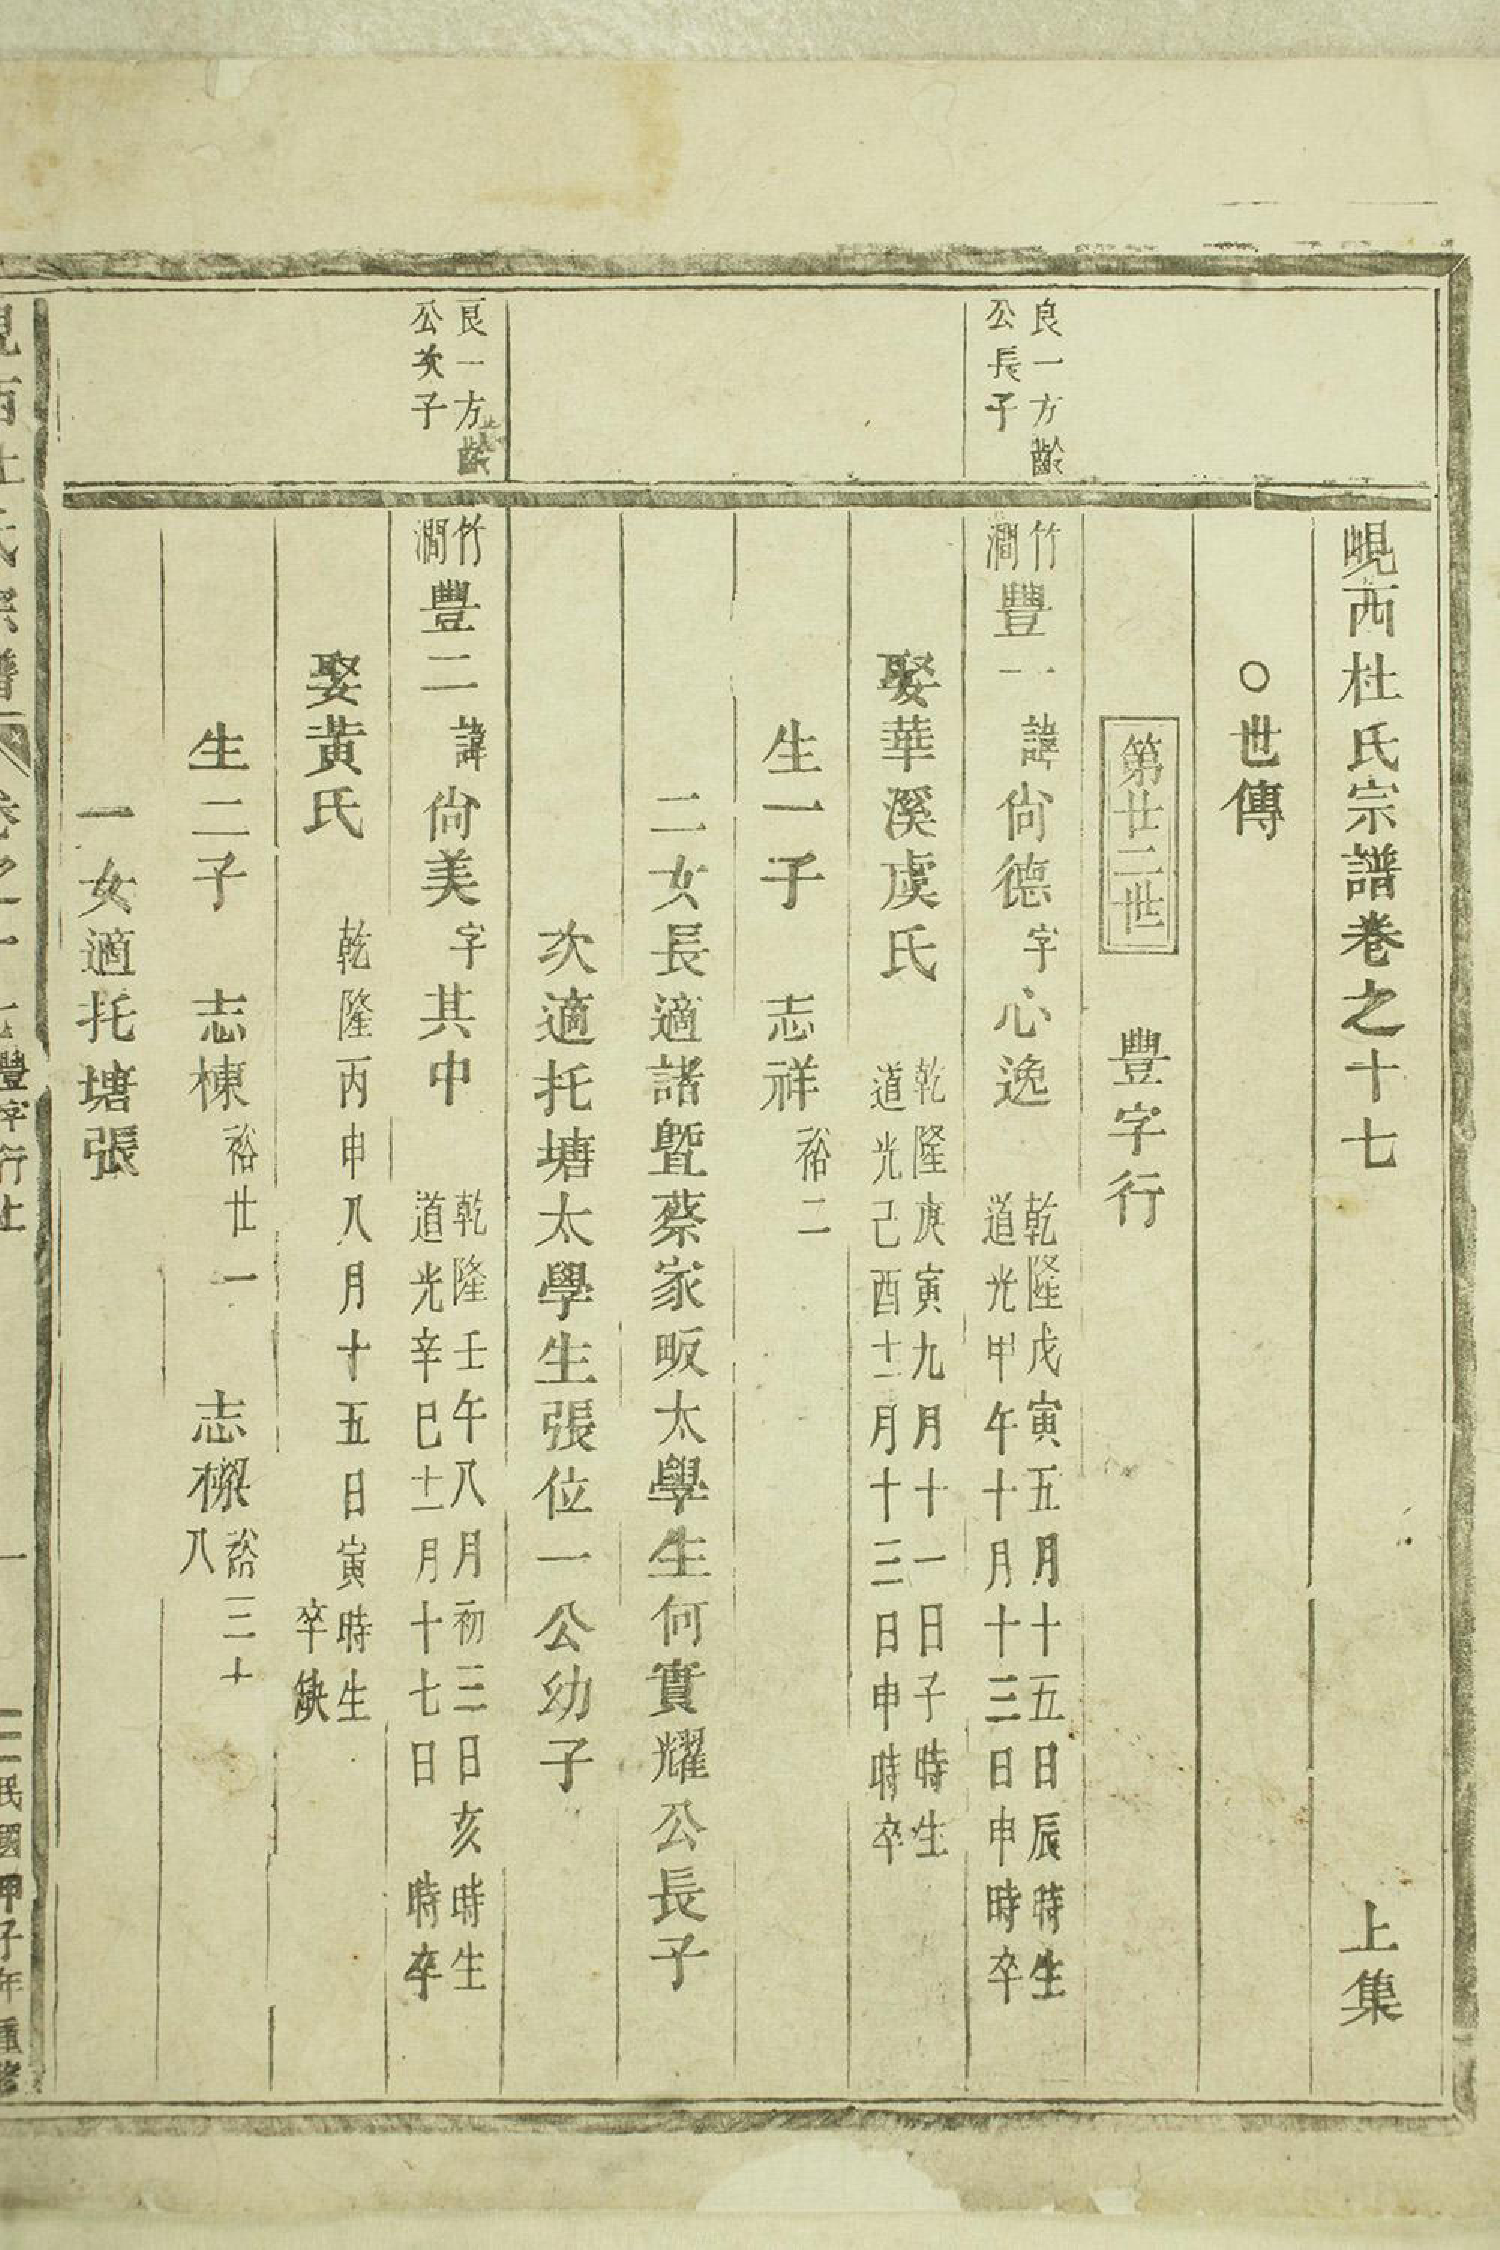 峴西杜氏宗譜卷之十七　上集
○世傳
第廿二世　豐字行
良一方齡
公長子
竹澗豐一諱尙德字心逸　乾隆戊寅五月十五日辰時生
道光甲午十月十三日申時卒
娶華溪虞氏　乾隆庚寅九月十一日子時生
道光己酉十一月十三日申時卒
生一子　志祥裕二
二女長適諸暨蔡家畈太學生何實耀公長子
次適托塘太學生張位一公幼子
良一方齡
公次子
竹澗豐二諱尙美字其中　乾隆壬午八月初三日亥時生
道光辛巳十一月十七日　時卒
娶黃氏　乾隆丙申八月十五日寅時生
卒缺
生二子　志棟裕廿一　志檪裕三十八
一女適托塘張
峴西杜氏宗譜　卷之十七豐字行上　一　民國甲子年重修